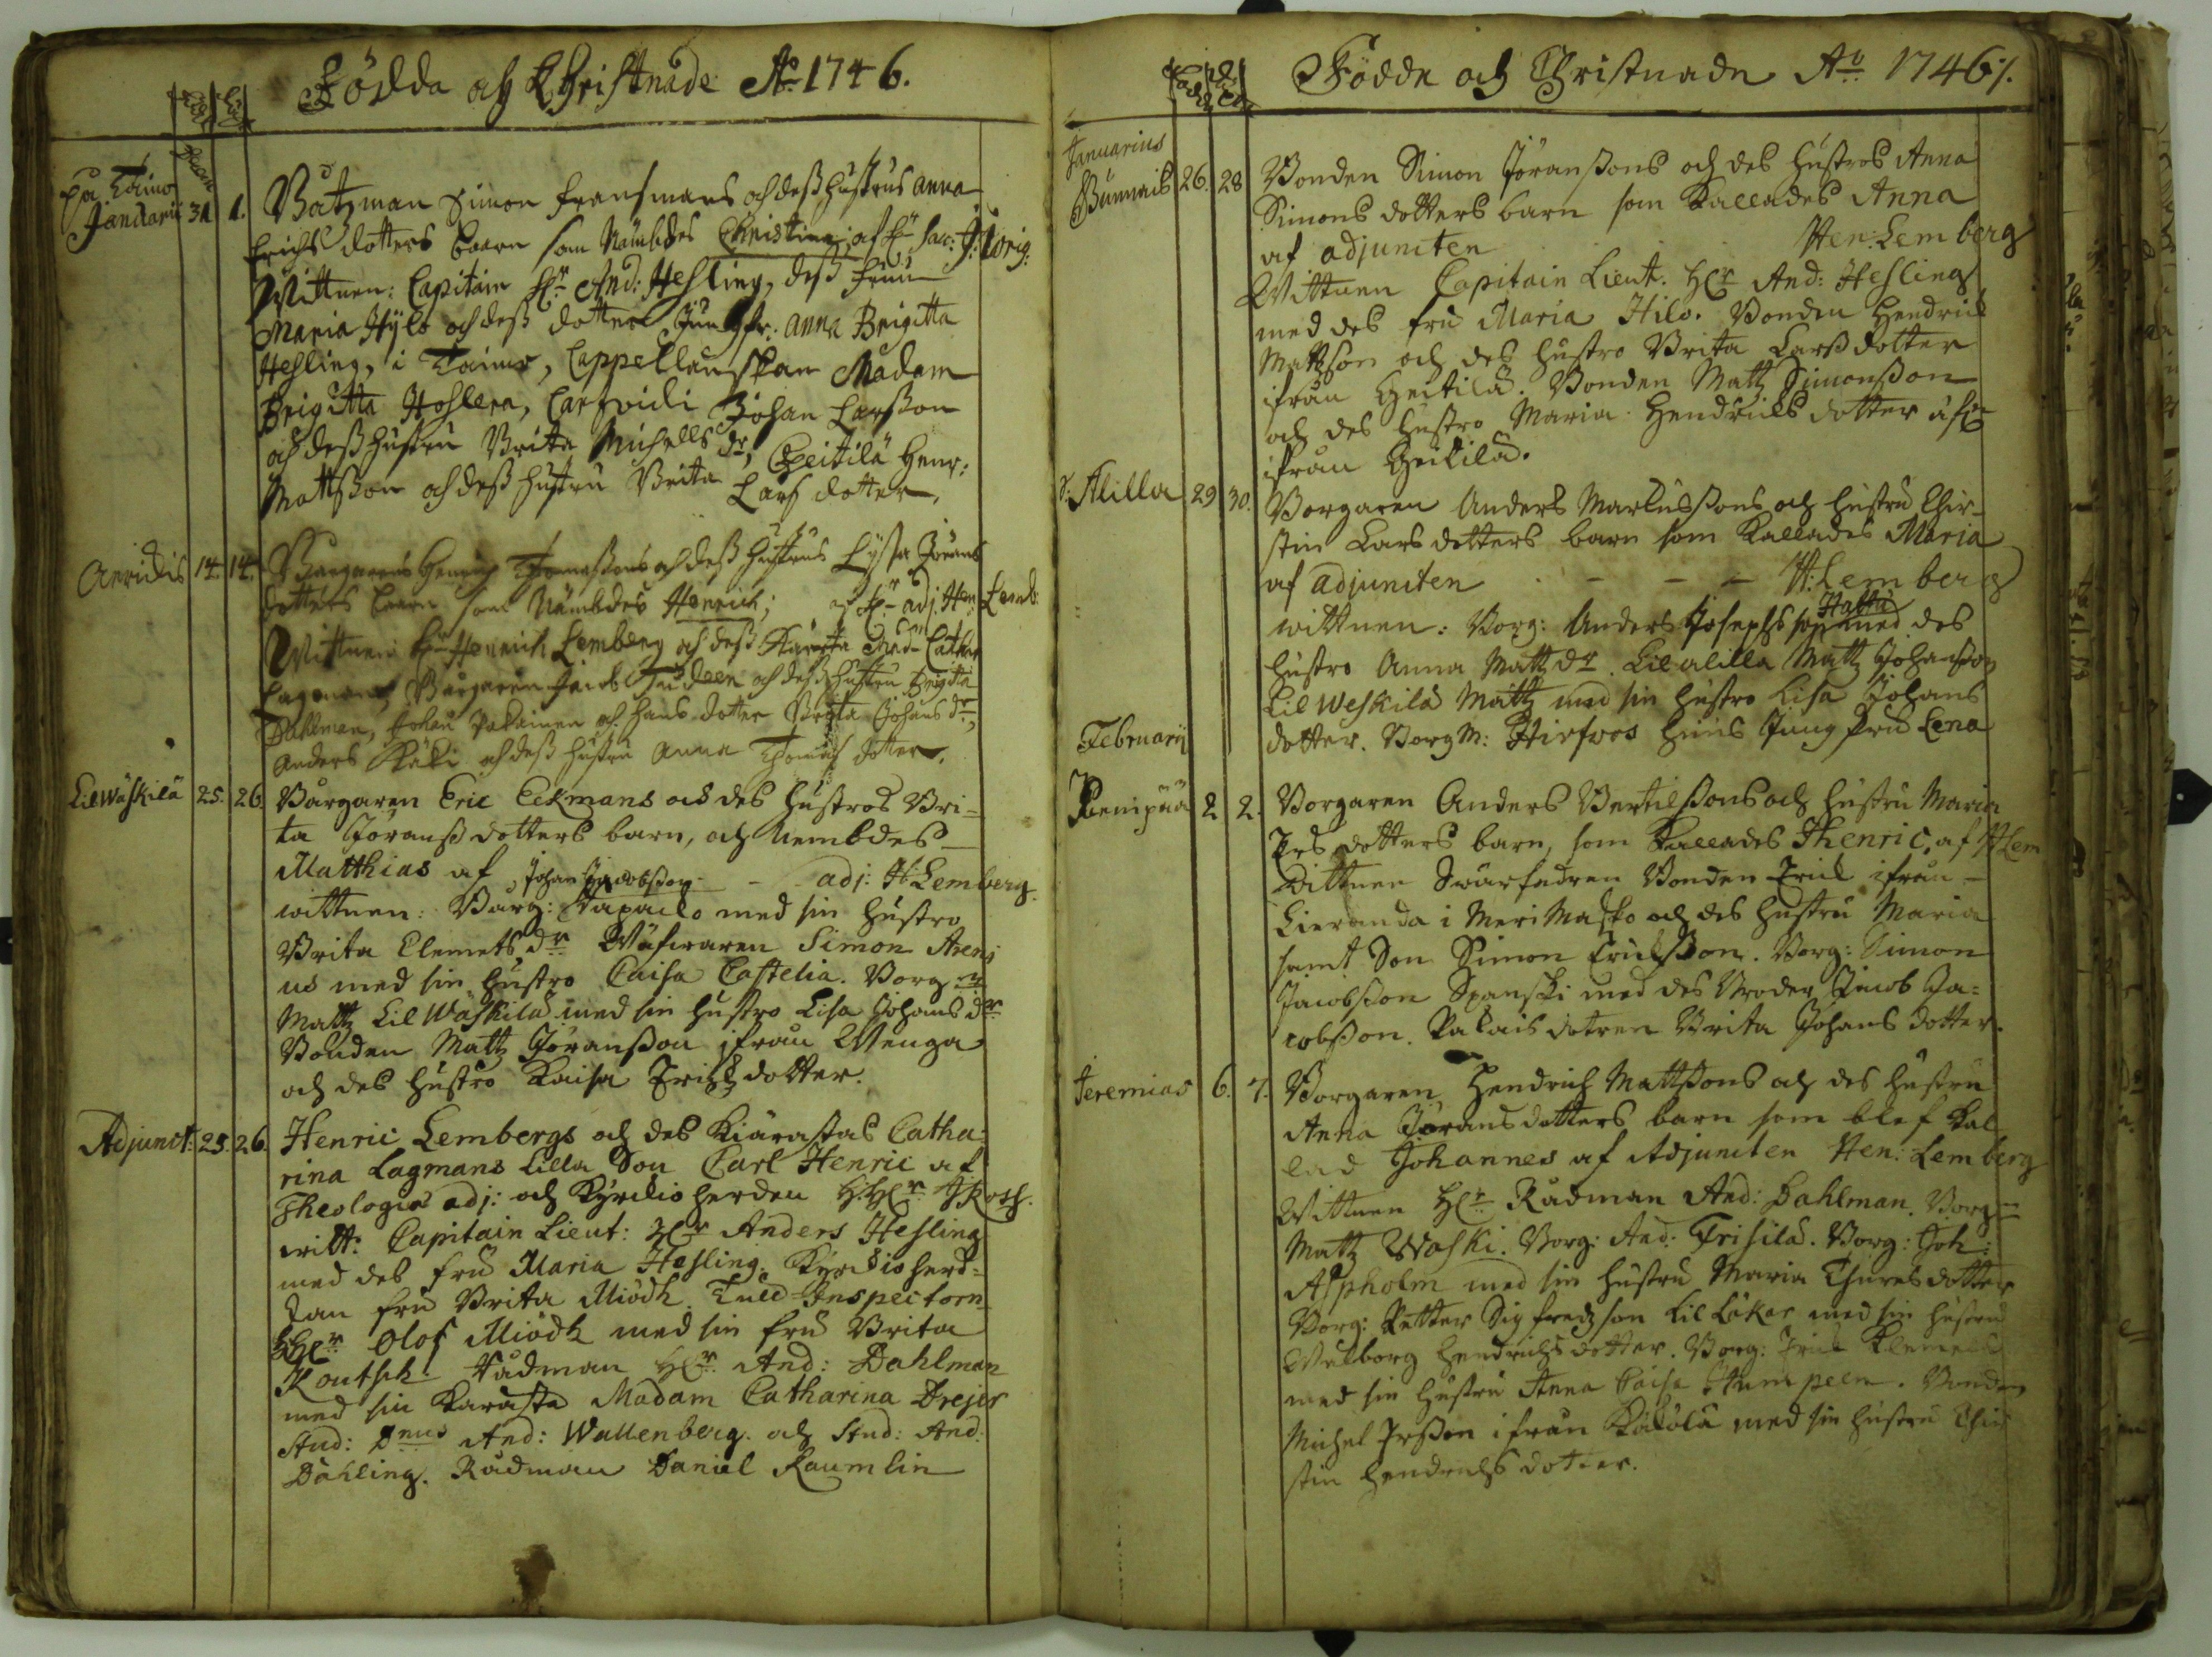 Födda och Christnade Ao 1746.
på Taimo
Januarii 31 1. Båtzman Simon Fransmans och dess hustrus Anna
Erichs dotters barn som nämbdes Christina; af
Wittnen: Capitain Hr And: Hesling, dess fruu
Maria Hylo och dess dotter Jungfr. Anna Brigitta
Hesling, i Taimo, Cappellanskan Madam
Brigitta Hohlera, Johan Larsson
och dess hustru Brita Michells dr, Heitilä Henr:
Mattsson och dess hustru Brita Lars dotter.
14. 14. Borgarens Henrich Thomassons och dess hustrus Lysa Jörans
dotters barn som nämbdes Henrich; af Hr adj. Hen: Lemb:
Wittnen Hr Henrich Lemberg och dess Käresta Mad: Cathar
Lagmans, Borgaren Jacob och dess hustru Brigita
Dahlman, Johan Pakainen och hans dotter Brita Johans dr,
Anders Käki och dess hustru Anna Thomas dotter.
Lilwäskilä 25. 26. Borgaren Eric Eckmans och des hustros Bri-
ta Jöranss dotters barn, och nembdes
Matthias af Johan Jacobsson - - adj: H Lemberg.
wittnen: Borg: Papailo med sin hustro
Brita Clemets dr Wäfwaren Simon Areni
us med sin hustro Caisa Castelia. Borg
Mattz Lil Wäskilä med sin hustro Lisa Johans dr
Bonden Mattz Göransson ifrån Wenga
och des hustro Kaisa Erichsdotter.
Adjunct: 25. 26. Henric Lembergs och des Kiärastas Catha:
rina Lagmans lilla Son Carl Henric af
Theologiæ adj: och Kyrckioherden
witt: Capitain Lieut: Hr Anders Hesling
med des fru Maria Hesling. Kyrckioherd=
dan fru Brita Miödh. Tull-Inspectorn
Hr Olof Miödh med sin fru Brita
Koutsch. Rådman Hr And: Dahlman
med sin Karasta Madam Catharina Drejer
Stud: Dnus And: Wallenberg. och Stud: And:
Dahling. Rådman Daniel Raumlin
Födde och Christnade Ao 1746.
Januarius
26. 28 Bonden Simon Jöranssons och des hustros Anna
Simons dotters barn som kallades Anna
af adjuncten Hen: Lemberg
Wittnen Capitain Lieut. Hr And: Hesling
med des fru Maria Hilo. Bonden Hendrich
Mattsson och des hustro Brita Larssdotter
ifrån Heitilä. Bonden Matz Simonsson
och des hustro Maria Hendrichs dotter
ifrån Heikilä.
Alilla 29 30. Borgaren Anders Markussons och hustru Chir-
stin Lars dotters barn som kallades Maria
af adjuncten - - - H: Lemberg
wittnen: Borg: Anders Josephsson med des
hustro Anna Matz dr. Lilalilla Matz Johansson
Lil Weskilä Mattz med sin hustro Lisa Johans
dotter. Borgm: Hirfwos Jungfru Lena
Februarij
Kenipää 2 2. Borgaren Anders Bertilssons och hustru Maria
dotters barn, som kallades Henric, af H Lem
Wittnen Swärfadren Bonden Erick ifrån
Lieranda i Meri Masko och des hustru Maria
samt Son Simon Ericksson. Borg: Simon
Jacobsson Spanski med des Broder Jacob Ja=
cobsson. Pakais dotren Brita Johans dotter.
Jeremias 6. 7. Borgaren Hendrich Mattssons och des hustru
Anna Jöransdotters barn som blef kal
lad Johannes af Adjuncten Hen: Lemberg
Wittnen Hr Rådman And: Dahlman. Borg
Matz Waski. Borg: And: Frisilä. Borg: Joh:
Aspholm med sin hustru Maria Thuresdotter
Borg: Petter Sigfredsson Lil Läkar med sin hustru
Walborg Hendrichsdotter. Borg: Erich Klemets
med sin hustru Anna Caisa Stumpeen. Bonden
Michel Ersson ifrån Kaköla med sin hustru Chir
stin Hendrichs dotter.